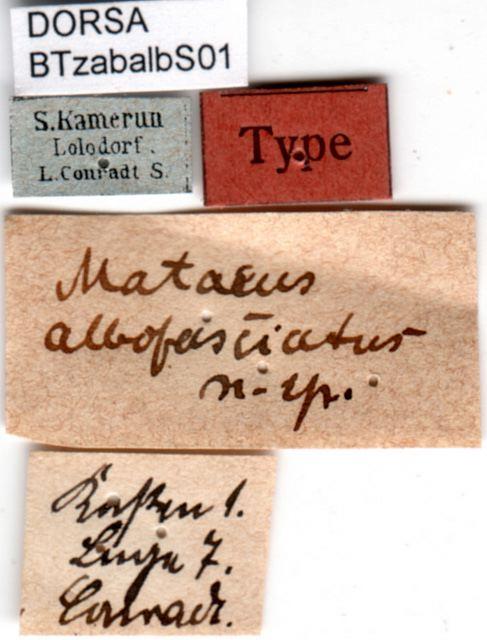 DORSA
BTzabalbS01
S. Kamerun
Lolodorf.
L. Conradt S.
Type
Mataeus
albofasciatus
n. sp.
Kasten 1.
7.
Conradt.